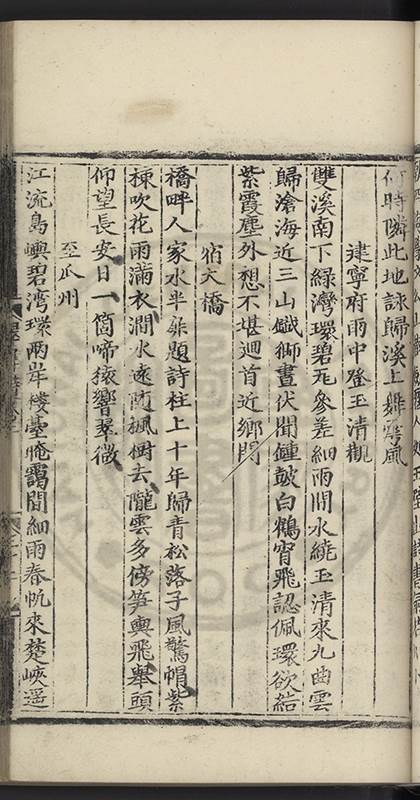 何時隣此地詠歸溪上舞雩風
建寧府雨中登玉清觀
雙溪南下綠灣環碧瓦參差細雨間水繞玉清來九曲雲
歸滄海近三山鐡獅晝伏聞鍾皷白鶴宵飛認佩環欲結
紫霞塵外想不堪迴首近鄉関
宿大橋
橋畔人家水半扉題詩柱上十年歸青松落子風驚帽紫
楝吹花雨滿衣澗水遠隨楓樹去隴雲多傍笋輿飛舉頭
仰望長安日一箇啼猿響翠微
至瓜州
江流島嶼碧灣環兩岸樓臺晻靄間細雨春帆來楚峽遥